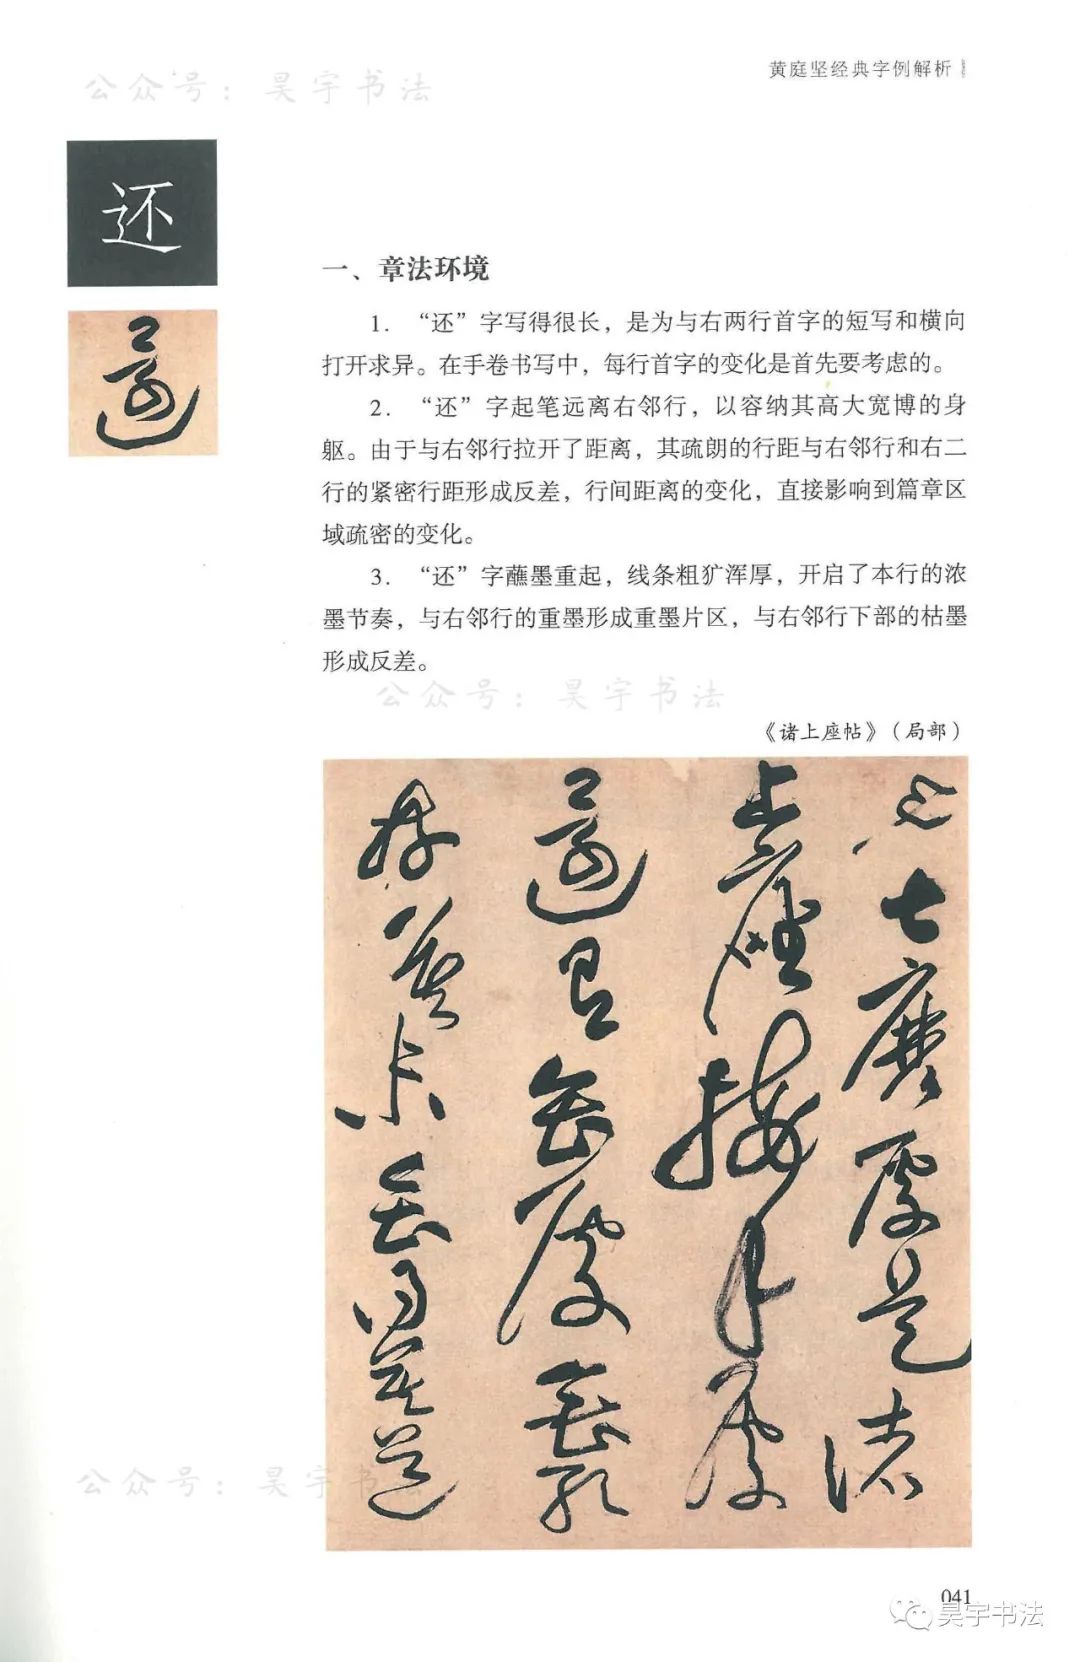 公众号：昊宇书法
黄庭坚经典字例解析
还
還
一、章法环境
1. “还”字写得很长，是为与右两行首字的短写和横向
打开求异。在手卷书写中，每行首字的变化是首先要考虑的。
2. “还”字起笔远离右邻行，以容纳其高大宽博的身
躯。由于与右邻行拉开了距离，其疏朗的行距与右邻行和右二
行的紧密行距形成反差，行间距离的变化，直接影响到篇章区
域疏密的变化。
3. “还”字蘸墨重起，线条粗犷浑厚，开启了本行的浓
墨节奏，与右邻行的重墨形成重墨片区，与右邻行下部的枯墨
形成反差。
公众号：昊宇书法
《诸上座帖》（局部）
處是諸
上座接手處
還
公众号：昊宇书
041
昊宇书法